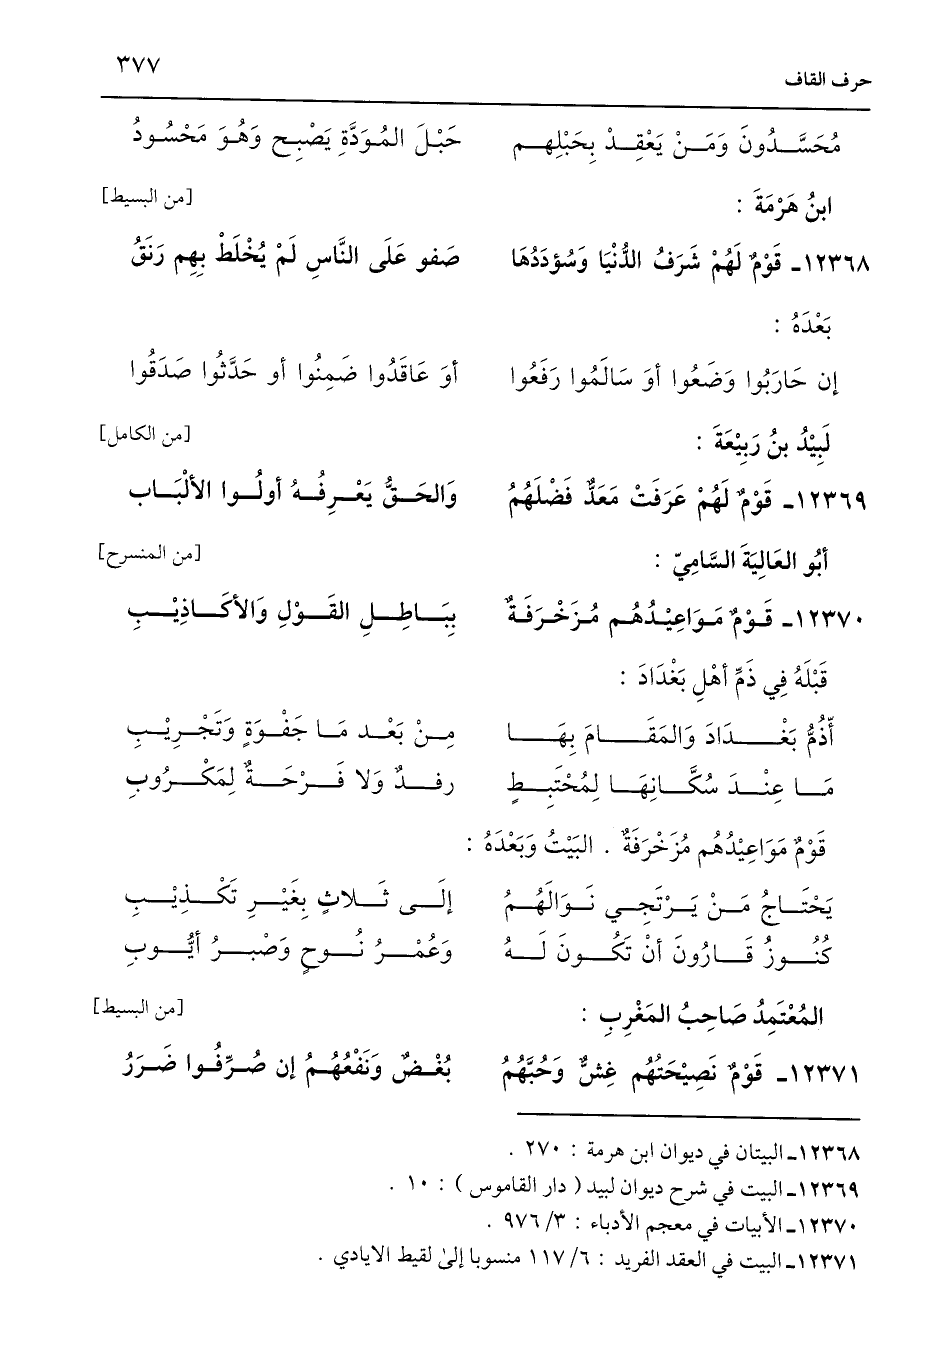 حرف القاف ٣٧٧
مُحَسَّدُونَ وَمَنْ يَعْقِدْ بِحَبْلِهِم حَبْلَ المُوَدَّةِ يَصْبِح وَهُوَ مَحْسُودُ
ابنُ هَرْمَةَ : [من البسيط]
١٢٣٦٨ـ قَوْمٌ لَهُمْ شَرَفُ الدُّنْيَا وَسُؤدَدُهَا صَفو عَلَى النَّاسِ لَمْ يُخْلَطْ بِهِم رَنَقُ
بَعْدَهُ :
إن حَارَبُوا وَضَعُوا أوَ سَالَمُوا رَفَعُوا أوَ عَاقَدُوا ضَمِنُوا أو حَدَّثُوا صَدَقُوا
لَبِيْدُ بنُ رَبِيْعَةَ : [من الكامل]
١٢٣٦٩ـ قَوْمٌ لَهُمْ عَرَفَتْ مَعَدٌّ فَضْلَهُمُ وَالحَقُّ يَعْرِفُهُ أولُوا الألْبَاب
أبُو العَالِيَةَ السَّامِيّ : [من المنسرح]
١٢٣٧٠ـ قَوْمٌ مَوَاعِيْدُهُم مُزَخْرَفَةٌ بِبَاطِلِ القَوْلِ وَالأكَاذِيْبِ
قَبْلَهُ فِي ذَمِّ أهْلِ بَغْدَادَ :
أذُمُّ بَغْدَادَ وَالمَقَامَ بِهَا مِنْ بَعْد مَا جَفْوَةٍ وَتَجْرِيْبِ
مَا عِنْدَ سُكَّانِهَا لِمُخْتَبِطٍ رفدٌ وَلا فَرْحَةٌ لِمَكْرُوبِ
قَوْمٌ مَوَاعِيْدُهُم مُزَخْرَفَةٌ . البَيْتُ وَبَعْدَهُ :
يَحْتَاجُ مَنْ يَرْتَجِي نَوَالَهُمُ إلَى ثَلاثٍ بِغَيْرِ تَكْذِيْبِ
كُنُوزُ قَارُونَ أنْ تَكُونَ لَهُ وَعُمْرُ نُوحٍ وَصَبرُ أيُّوبِ
المُعْتَمِدُ صَاحِبُ المَغْرِبِ : [من البسيط]
١٢٣٧١ـ قَوْمٌ نَصِيْحَتُهُم غِشٌّ وَحُبَّهُمُ بُغْضٌ وَنَفْعُهُمُ إن صُرِّفُوا ضَرَرُ
١٢٣٦٨ـ البيتان في ديوان ابن هرمة : ٢٧٠ .
١٢٣٦٩ـ البيت في شرح ديوان لبيد ( دار القاموس ) : ١٠ .
١٢٣٧٠ـ الأبيات في معجم الأدباء : ٣/ ٩٧٦ .
١٢٣٧١ـ البيت في العقد الفريد : ٦/ ١١٧ منسوبا إلىٰ لقيط الايادي .